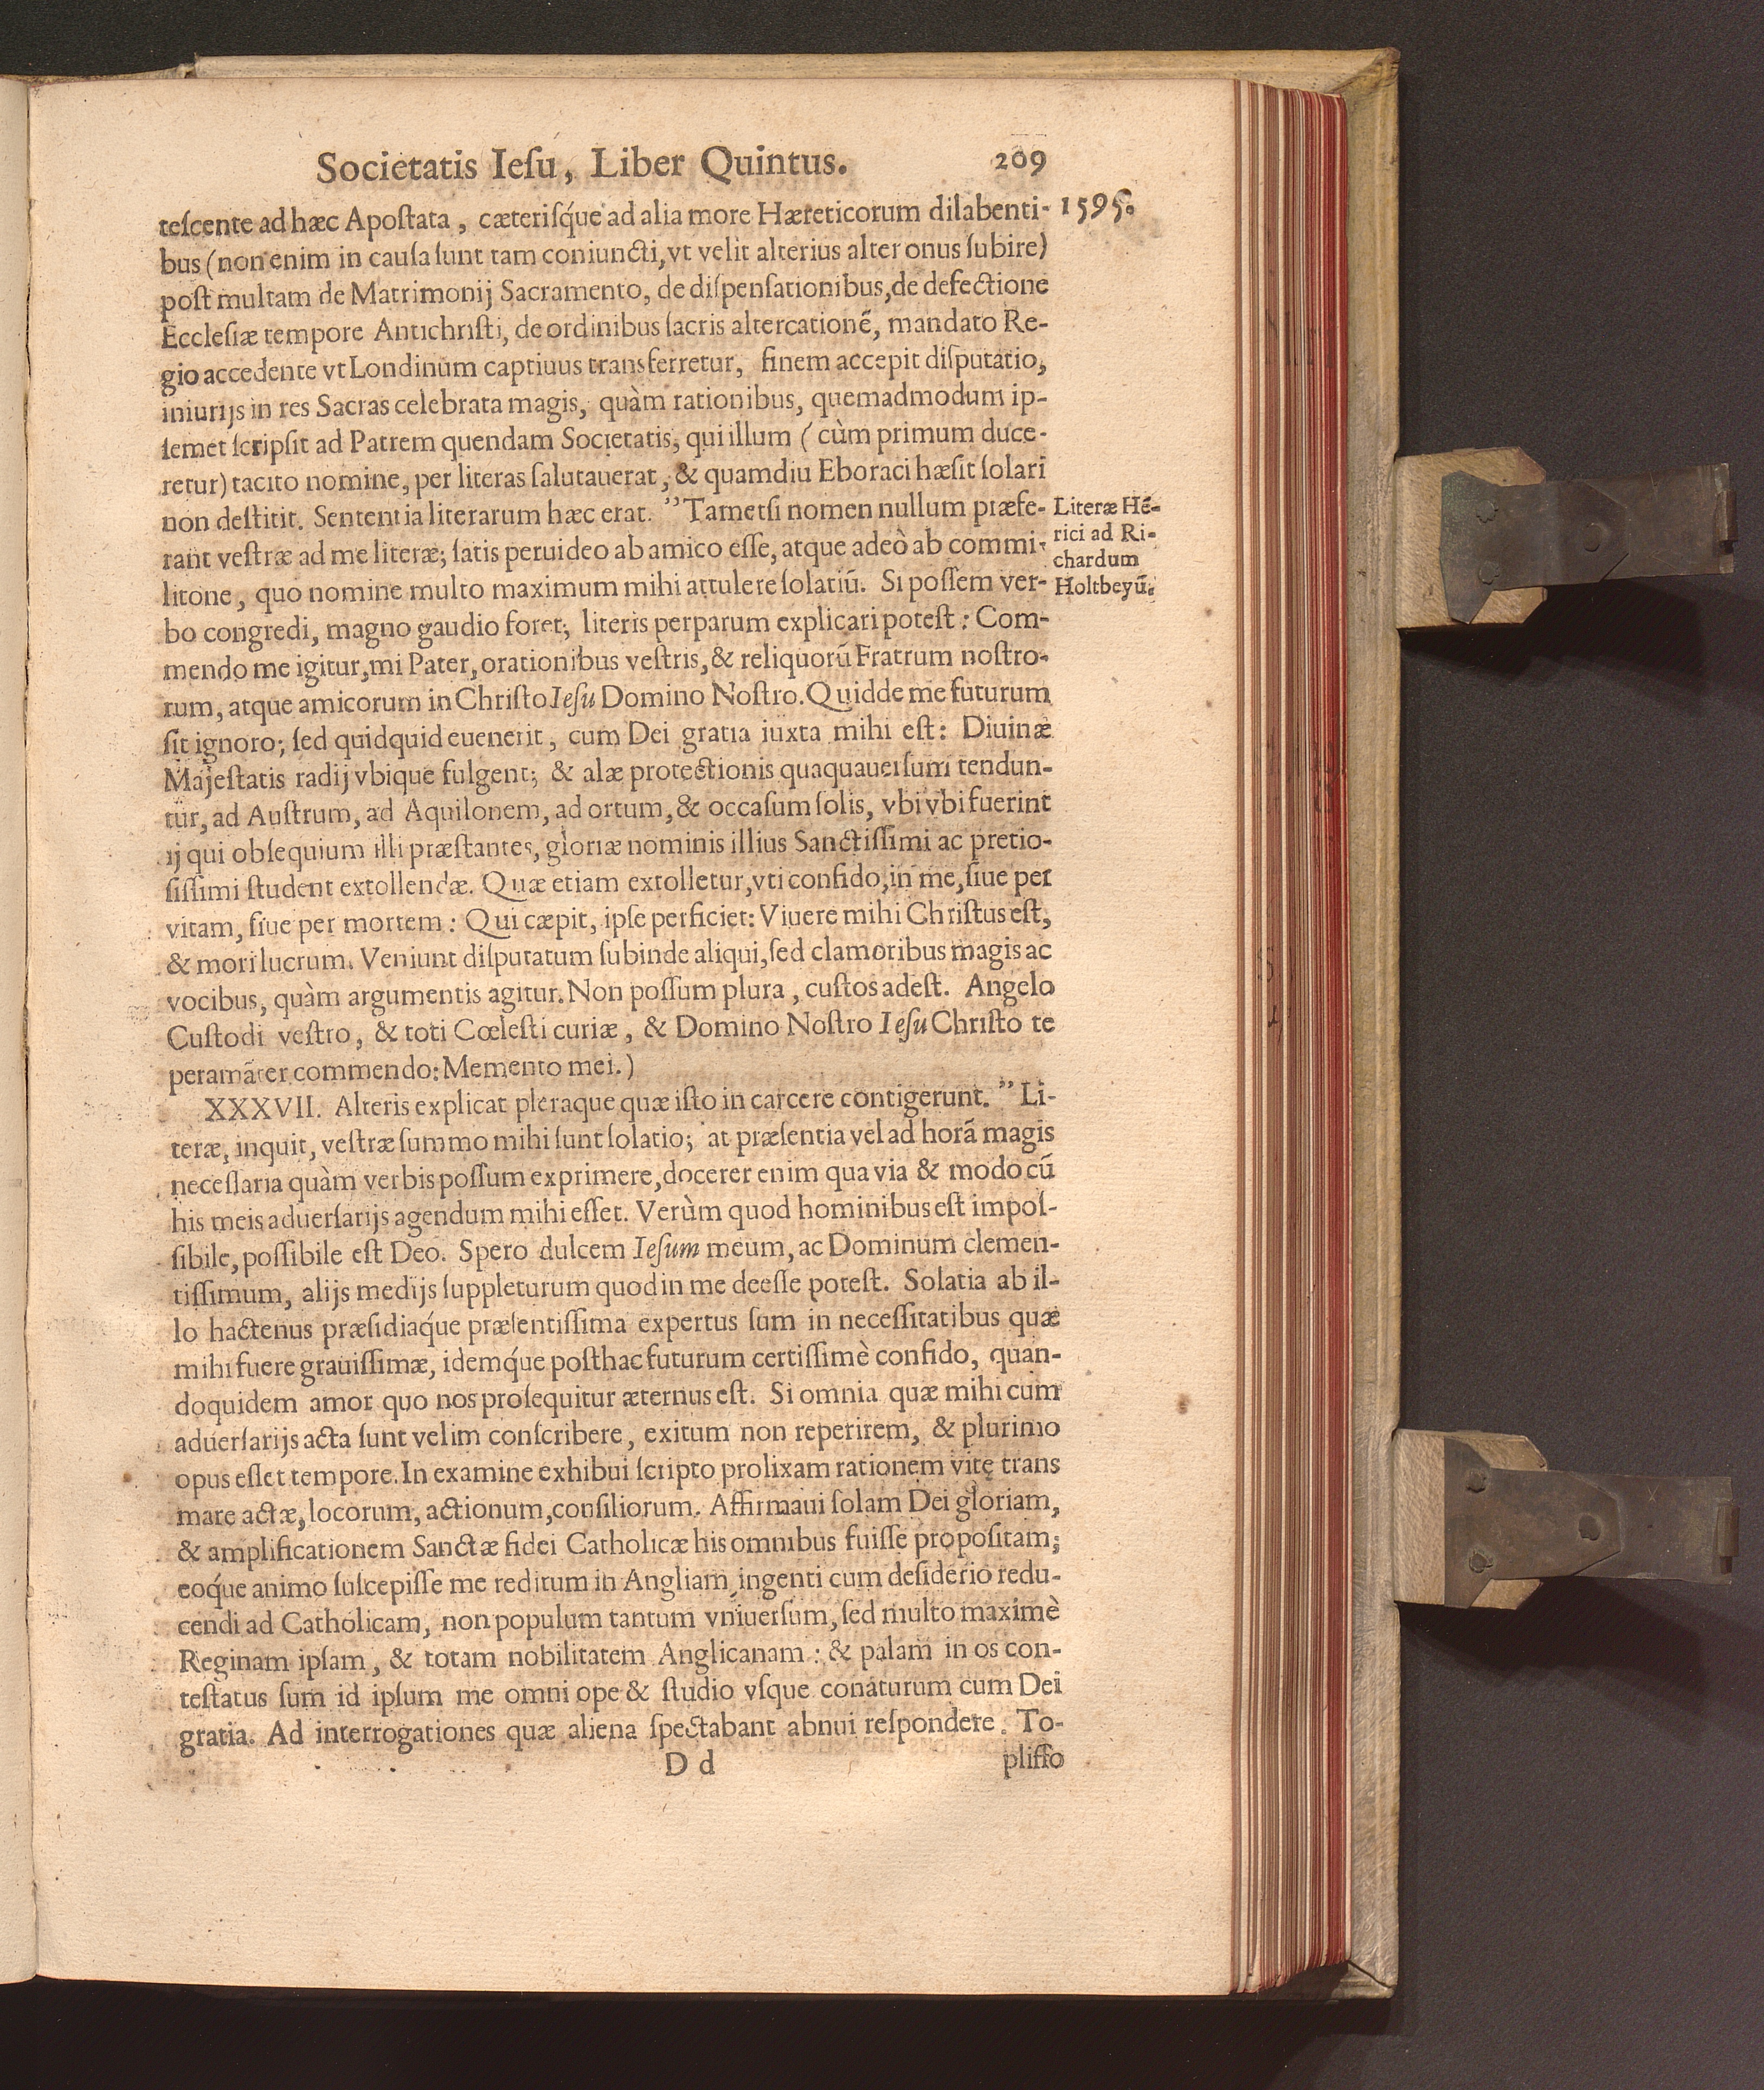 Societatis Ieſu, Liber Quintus. 209
teſcente ad hæc Apoſtata, cæteriſq́ue ad alia more Hæreticorum dilabenti- 1595.
bus (non enim in cauſa ſunt tam coniuncti, vt velit alterius alter onus ſubire)
poſt multam de Matrimonij Sacramento, de diſpenſationibus, de defectione
Eccleſiæ tempore Antichriſti, de ordinibus ſacris altercationẽ, mandato Re-
gio accedente vt Londinum captiuus transferretur, finem accepit diſputatio,
iniurijs in res Sacras celebrata magis, quàm rationibus, quemadmodum ip-
ſemet ſcripſit ad Patrem quendam Societatis, qui illum (cùm primum duce-
retur) tacito nomine, per literas ſalutauerat, & quamdiu Eboraci hæſit ſolari
non deſtitit. Sententia literarum hæc erat. ” Tametſi nomen nullum præfe-
rant veſtræ ad me literæ; ſatis peruideo ab amico eſſe, atque adeò ab commi-
litone, quo nomine multo maximum mihi attulere ſolatiũ. Si poſſem ver-
bo congredi, magno gaudio foret; literis perparum explicari poteſt: Com-
mendo me igitur, mi Pater, orationibus veſtris, & reliquorũ Fratrum noſtro-
rum, atque amicorum in Chriſto Ieſu Domino Noſtro. Quid de me futurum
ſit ignoro; ſed quidquid euenerit, cum Dei gratia iuxta mihi eſt: Diuinæ
Majeſtatis radij vbique fulgent; & alæ protectionis quaquauerſum tendun-
tur, ad Auſtrum, ad Aquilonem, ad ortum, & occaſum ſolis, vbi vbi fuerint
ij qui obſequium illi præſtantes, gloriæ nominis illius Sanctiſſimi ac pretio-
ſiſſimi ſtudent extollendæ. Quæ etiam extolletur, vti confido, in me, ſiue per
vitam, ſiue per mortem: Qui cæpit, ipſe perficiet: Viuere mihi Chriſtus eſt,
& mori lucrum. Veniunt diſputatum ſubinde aliqui, ſed clamoribus magis ac
vocibus, quàm argumentis agitur. Non poſſum plura, cuſtos adeſt. Angelo
Cuſtodi veſtro, & toti Cœleſti curiæ, & Domino Noſtro Ieſu Chriſto te
peramãter commendo: Memento mei.)
Literæ Hẽ-
rici ad Ri-
chardum
Holtbeyũ.
XXXVII. Alteris explicat pleraque quæ iſto in carcere contigerunt. ” Li-
teræ, inquit, veſtræ ſummo mihi ſunt ſolatio; at præſentia vel ad horã magis
neceſſaria quàm verbis poſſum exprimere, docerer enim qua via & modo cũ
his meis aduerſarijs agendum mihi eſſet. Verùm quod hominibus eſt impoſ-
ſibile, poſſibile eſt Deo. Spero dulcem Ieſum meum, ac Dominum clemen-
tiſſimum, alijs medijs ſuppleturum quod in me deeſſe poteſt. Solatia ab il-
lo hactenus præſidiaq́ue præſentiſſima expertus ſum in neceſſitatibus quæ
mihi fuere grauiſſimæ, idemq́ue poſthac futurum certiſſimè confido, quan-
doquidem amor quo nos proſequitur æternus eſt. Si omnia quæ mihi cum
aduerſarijs acta ſunt velim conſcribere, exitum non reperirem, & plurimo
opus eſſet tempore. In examine exhibui ſcripto prolixam rationem vitę trans
mare actæ, locorum, actionum, conſiliorum. Affirmaui ſolam Dei gloriam,
& amplificationem Sanctæ fidei Catholicæ his omnibus fuiſſe propoſitam;
eoq́ue animo ſuſcepiſſe me reditum in Angliam, ingenti cum deſiderio redu-
cendi ad Catholicam, non populum tantum vniuerſum, ſed multo maximè
Reginam ipſam, & totam nobilitatem Anglicanam: & palam in os con-
teſtatus ſum id ipſum me omni ope & ſtudio vſque conaturum cum Dei
gratia. Ad interrogationes quæ aliena ſpectabant abnui reſpondere. To-
D d pliffo